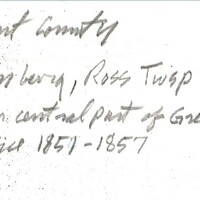 County
Ross Twsp
central part of Gre
ice 1851-1857